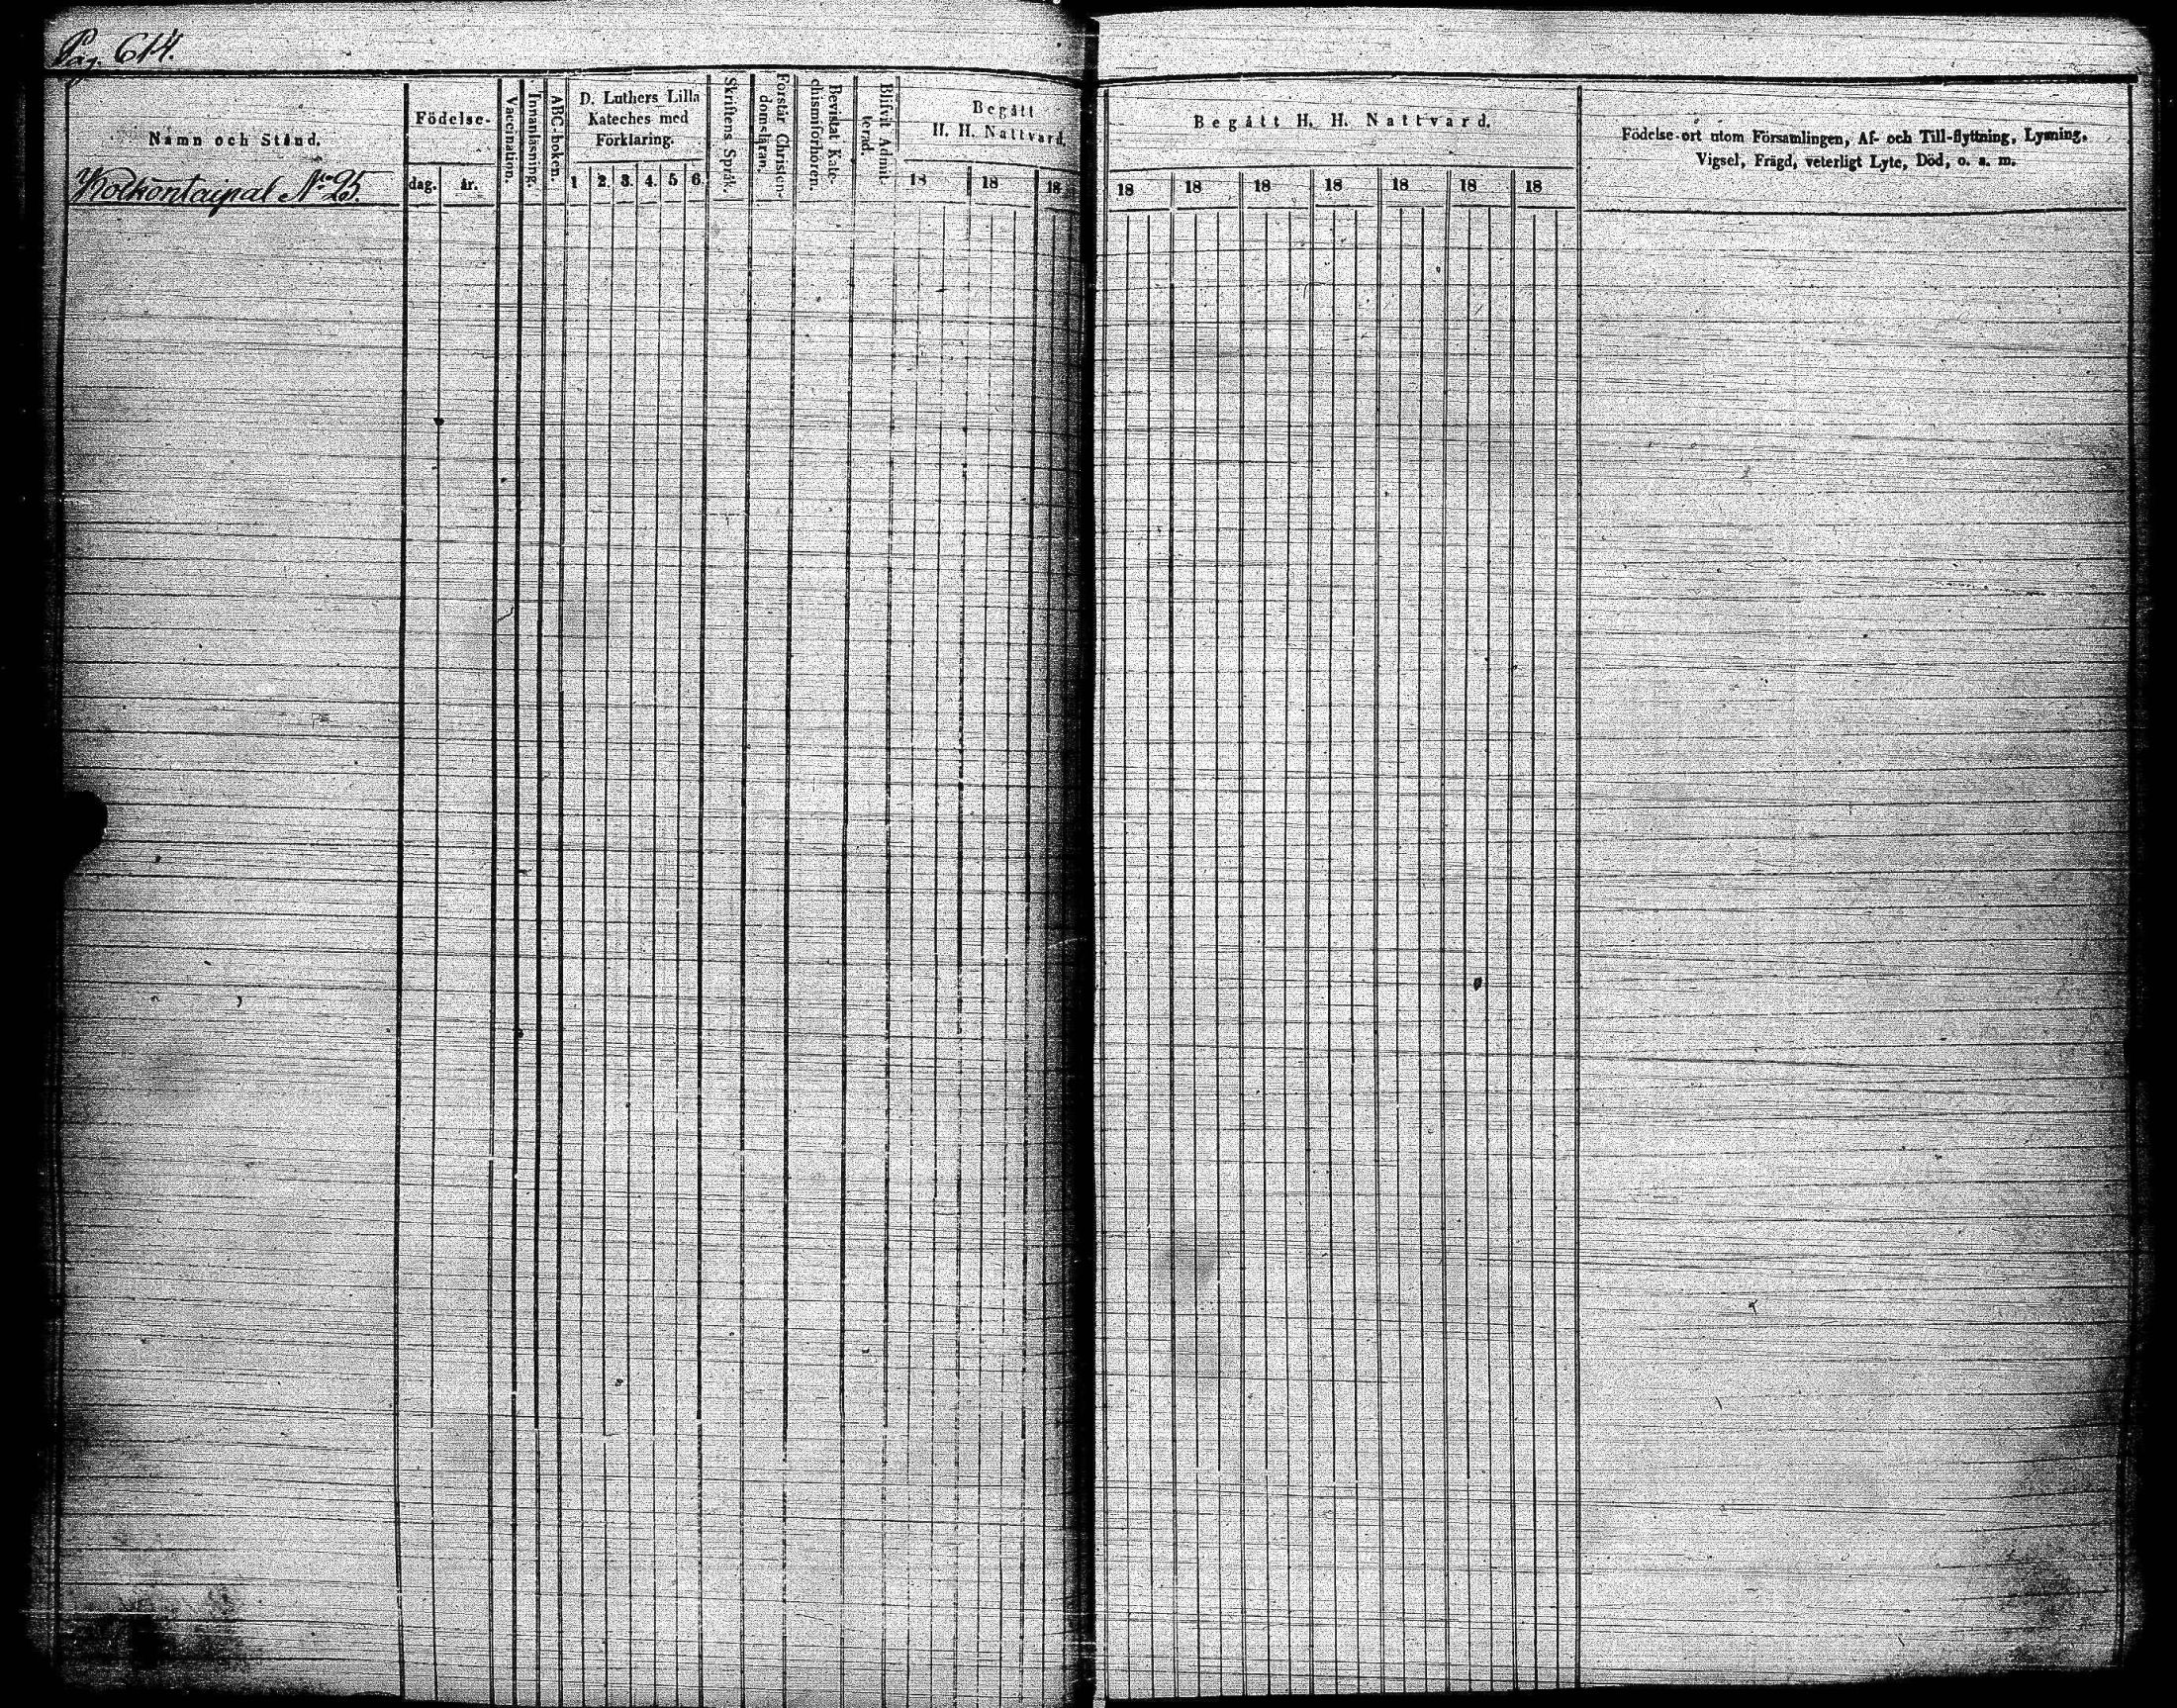 Pag. 614.
Namn och Stånd.
Kolkontaipal No 25.
Födelse-
dag. år.
Vaccination.
Innanläsning.
ABC-boken.
D. Luthers Lilla
Kateches med
Förklaring.
1 2. 3. 4. 5 6.
Skriftens Språk.
Förstår Christen-
domsläran.
Bevistat Kate-
chismiförhören.
Blifvit Admit-
terad.
Begått
H. H. Nattvard.
18 18 18
Begått H. H. Nattvard.
18 18 18 18 18 18 18
Födelse-ort utom Församlingen, Af- och Till-flyttning, Lysning,
Vigsel, Frägd, veterligt Lyte, Död, o. s. m.